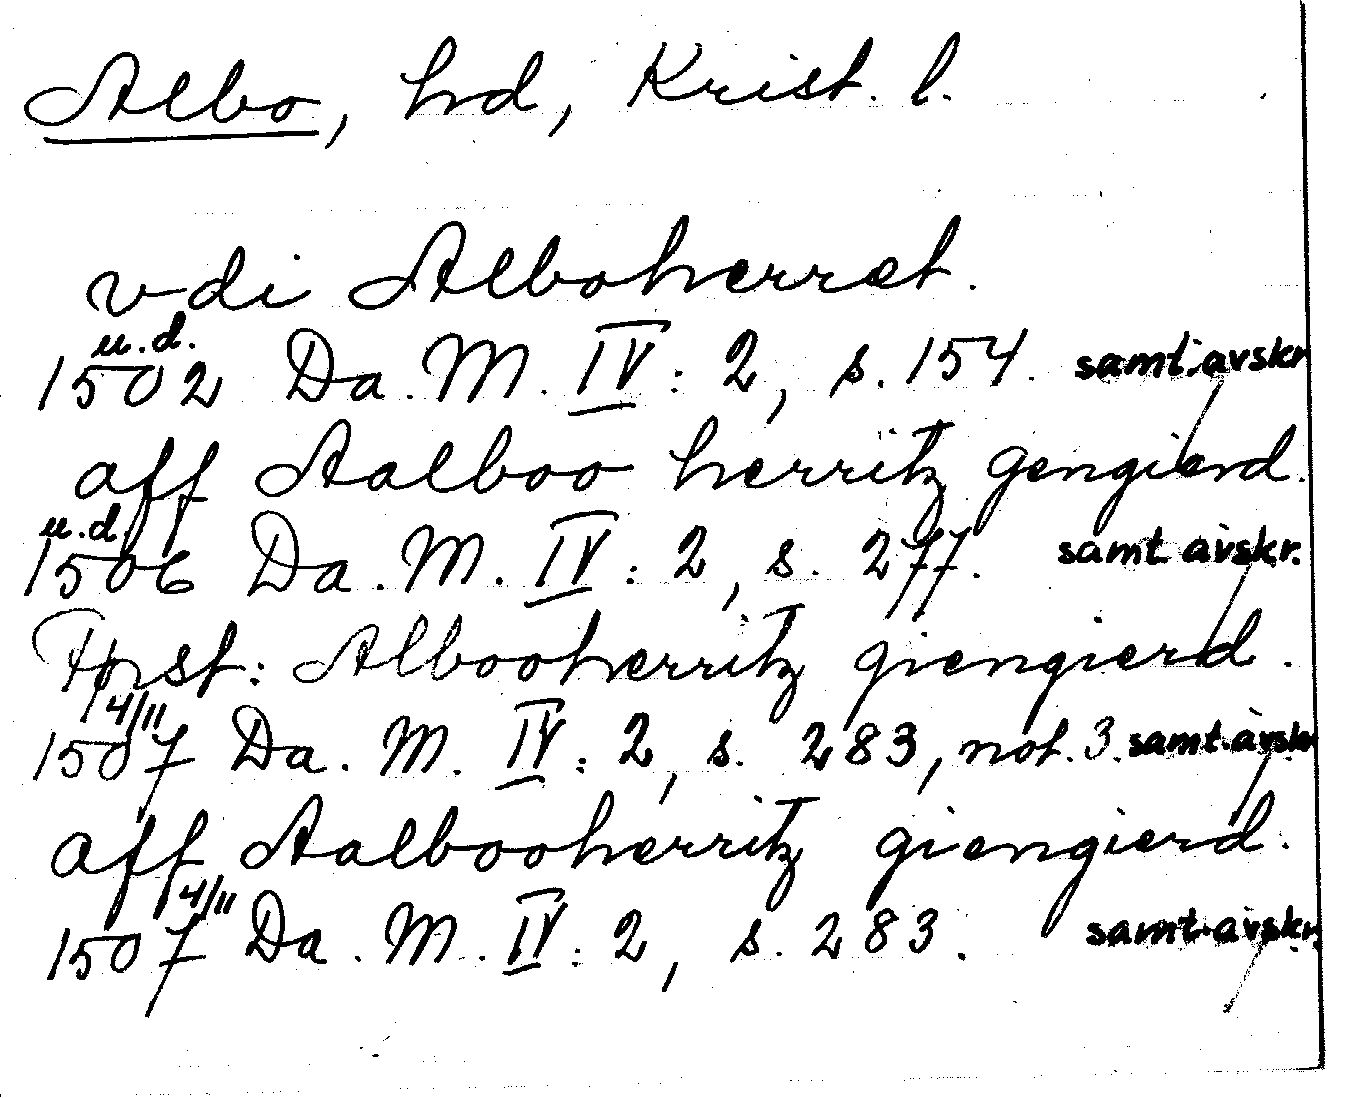 Albo, hd, Krist. l.
vdi Alboherret.
u.d.
1502 Da. M. IV: 2, s. 154. samt. avskr.
aff Aalboo herritz gengierd.
u.d.
1506 Da. M. IV: 2, s. 277. samt avskr.
Först: Albooherritz giengierd.
4/11
1507 Da. M. IV: 2, s. 283, not. 3. samt. avskr.
aff Aalbooherritz giengierd.
4/11
1507 Da. M. IV: 2, s. 283. samt. avskr.